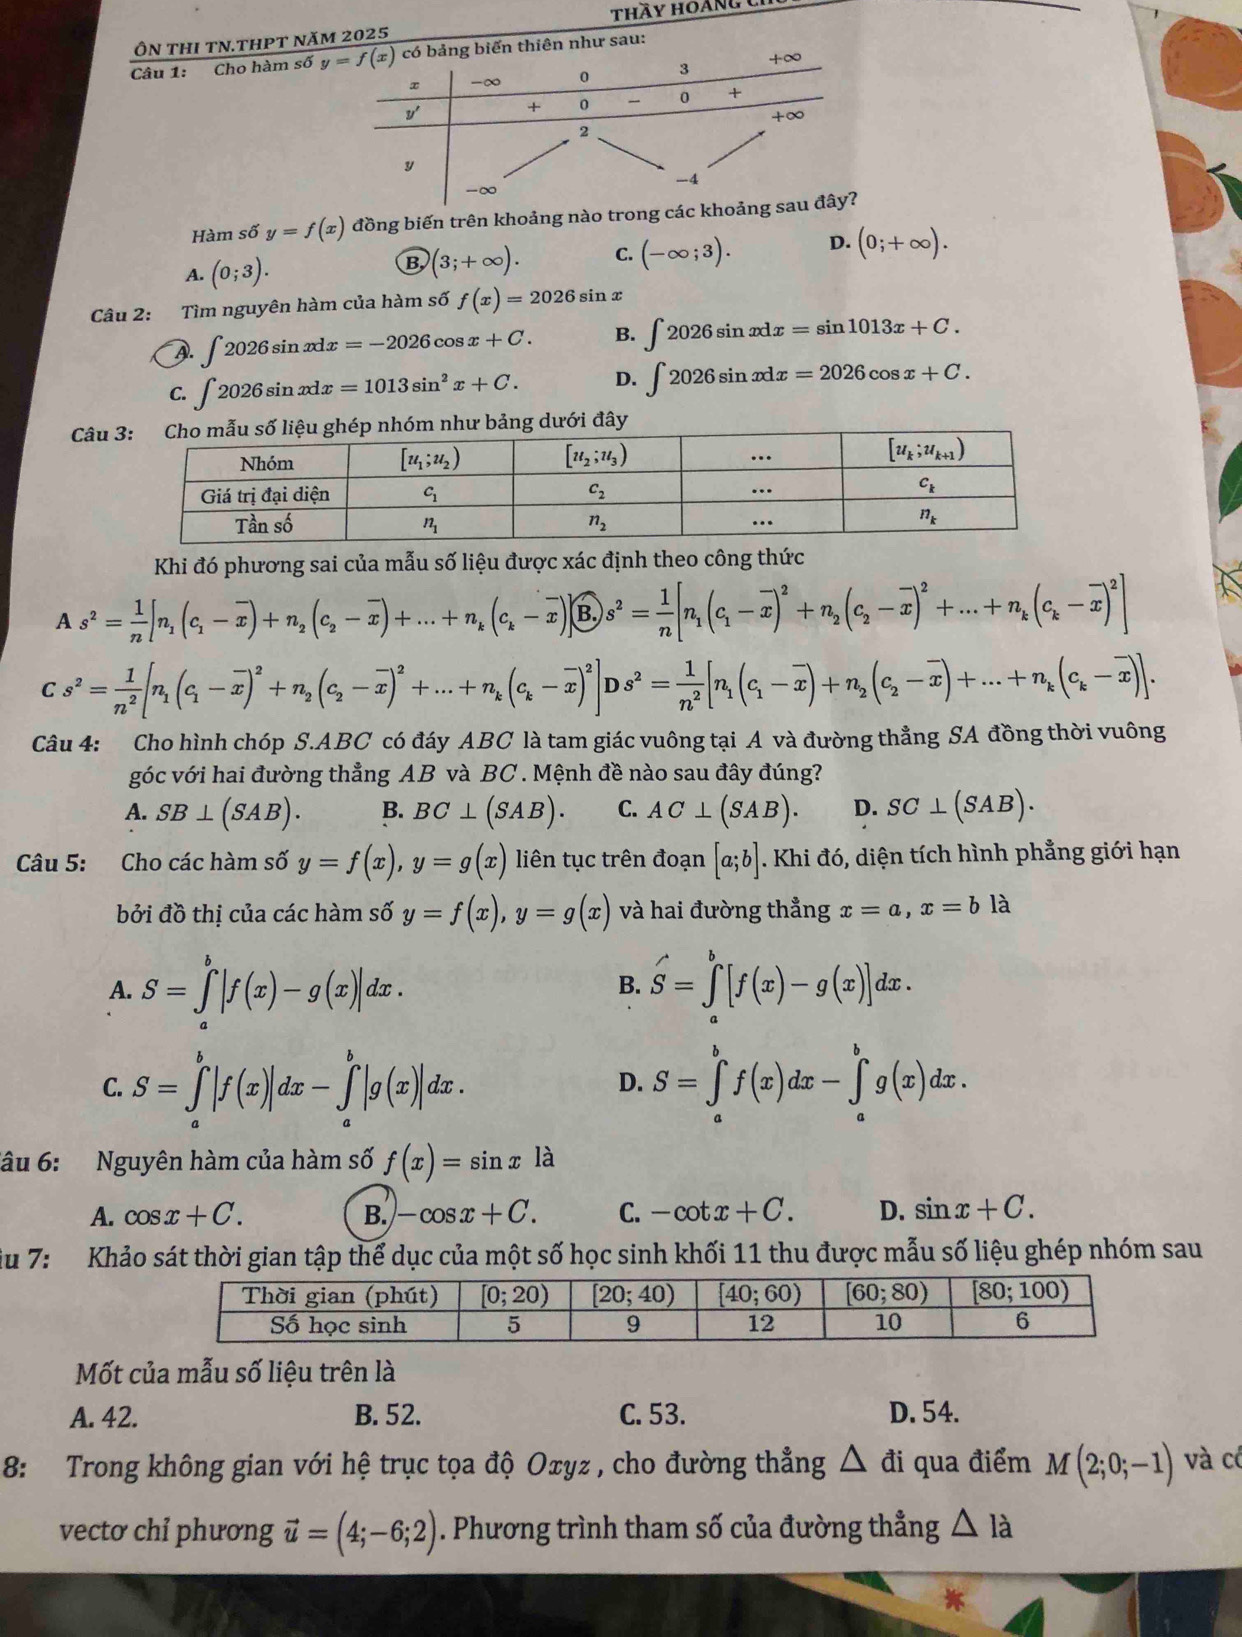 THẦY HOÀNG
ÔN THI TN.THPT NĂM 2025
Câu 1: Cho hàm số y = f(x) có bảng biến thiên như sau:
x −∞ 0 3 +∞
y' + 0 − 0 +
y −∞ 2 −4 +∞
Hàm số y = f(x) đồng biến trên khoảng nào trong các khoảng sau đây?
A. (0;3). B. (3;+∞). C. (−∞;3). D. (0;+∞).
Câu 2: Tìm nguyên hàm của hàm số f(x) = 2026 sin x
A. ∫2026 sin xdx = −2026 cos x + C. B. ∫2026 sin xdx = sin 1013x + C.
C. ∫2026 sin xdx = 1013 sin² x + C. D. ∫2026 sin xdx = 2026 cos x + C.
Câu 3: Cho mẫu số liệu ghép nhóm như bảng dưới đây
Nhóm [u₁;u₂) [u₂;u₃) ... [uₖ;uₖ₊₁)
Giá trị đại diện c₁ c₂ ... cₖ
Tần số n₁ n₂ ... nₖ
Khi đó phương sai của mẫu số liệu được xác định theo công thức
A s² = 1/n [n₁(c₁ − x̄) + n₂(c₂ − x̄) + ... + nₖ(cₖ − x̄)] B. s² = 1/n [n₁(c₁ − x̄)² + n₂(c₂ − x̄)² + ... + nₖ(cₖ − x̄)²]
C s² = 1/n² [n₁(c₁ − x̄)² + n₂(c₂ − x̄)² + ... + nₖ(cₖ − x̄)²] D s² = 1/n² [n₁(c₁ − x̄) + n₂(c₂ − x̄) + ... + nₖ(cₖ − x̄)].
Câu 4: Cho hình chóp S.ABC có đáy ABC là tam giác vuông tại A và đường thẳng SA đồng thời vuông
góc với hai đường thẳng AB và BC. Mệnh đề nào sau đây đúng?
A. SB ⊥ (SAB). B. BC ⊥ (SAB). C. AC ⊥ (SAB). D. SC ⊥ (SAB).
Câu 5: Cho các hàm số y = f(x), y = g(x) liên tục trên đoạn [a;b]. Khi đó, diện tích hình phẳng giới hạn
bởi đồ thị của các hàm số y = f(x), y = g(x) và hai đường thẳng x = a, x = b là
A. S = ∫ₐᵇ |f(x) − g(x)| dx. B. S = ∫ₐᵇ [f(x) − g(x)] dx.
C. S = ∫ₐᵇ |f(x)| dx − ∫ₐᵇ |g(x)| dx. D. S = ∫ₐᵇ f(x) dx − ∫ₐᵇ g(x) dx.
âu 6: Nguyên hàm của hàm số f(x) = sin x là
A. cos x + C. B. −cos x + C. C. −cot x + C. D. sin x + C.
u 7: Khảo sát thời gian tập thể dục của một số học sinh khối 11 thu được mẫu số liệu ghép nhóm sau
Thời gian (phút) [0; 20) [20; 40) [40; 60) [60; 80) [80; 100)
Số học sinh 5 9 12 10 6
Mốt của mẫu số liệu trên là
A. 42. B. 52. C. 53. D. 54.
8: Trong không gian với hệ trục tọa độ Oxyz, cho đường thẳng Δ đi qua điểm M(2;0;−1) và có
vectơ chỉ phương u⃗ = (4;−6;2). Phương trình tham số của đường thẳng Δ là